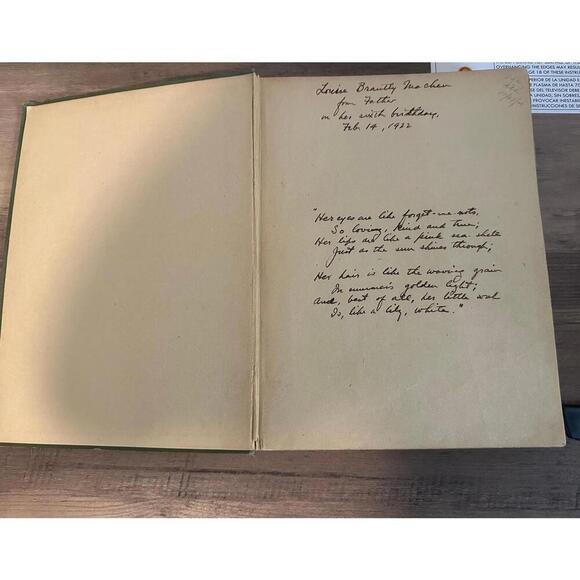 Louise Brantly Machen
from Father
on her sixth birthday,
Feb 14, 1922
"Her eyes are like forget-me-nots,
So loving, kind and true;
Her lips are like a pink sea-shell
Just as the sun shines through;
Her hair is like the waving grain
In summer's golden light;
And, best of all, her little soul
Is, like a lily, white."
OVERHANGING THE EDGES MAY RESUL
GE 18 OF THESE INSTRU
PERIOR OF THE
DE PLASMA DE HASTA
DEL TELEVISOR DEBE
A UNIDAD, SIN SOBRES
PROVOCAR INESTAB
INSTRUCCIONES DE SE